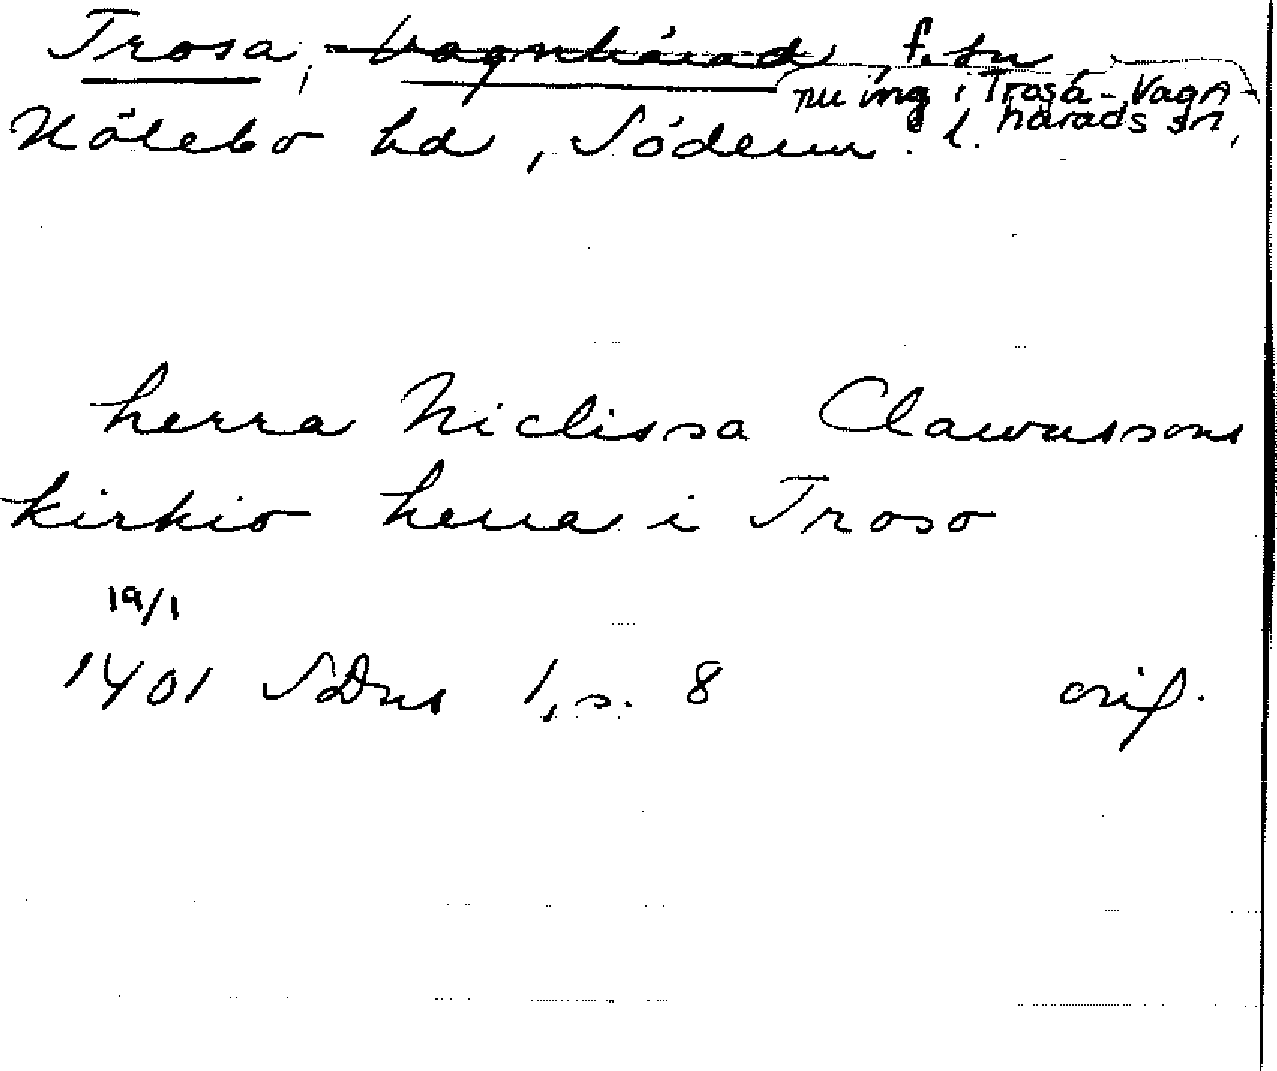 Trosa, Vagnhärad, f. sn
nu ing i Trosa-Vagn-
härads sn,
Hölebo hd, Söderm. l.
herra Niclissa Clawussons
kirkio herra i Troso
19/1
1401 SDns 1, s. 8 orig.